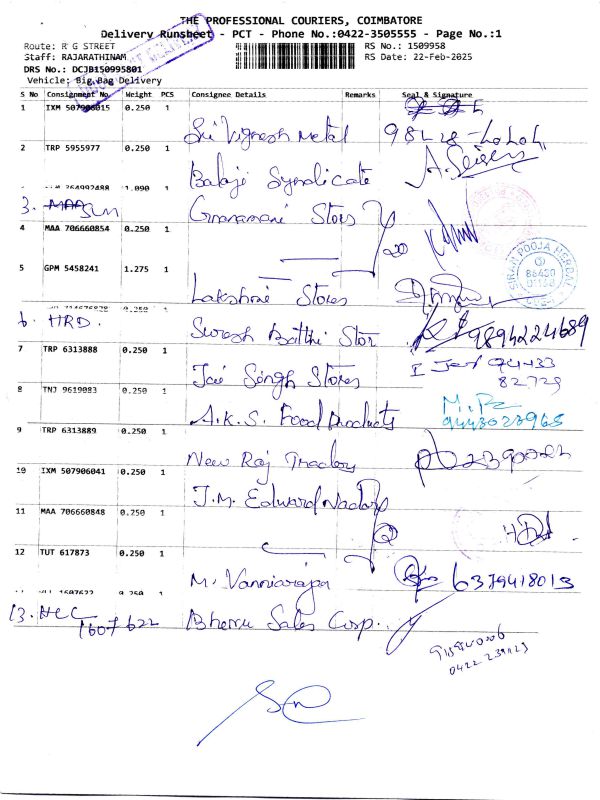 THE PROFESSIONAL COURIERS, COIMBATORE
Delivery Runsheet - PCT - Phone No.:0422-3505555 - Page No.:1
Route: R G STREET
RS No.: 1509958
Staff: RAJARATHINAM
RS Date: 22-Feb-2025
DRS No.: DCJB150995801
Vehicle: Big Bag Delivery
S No Consignment No Weight PCS Consignee Details Remarks Seal & Signature
1 IXM 507906015 0.250 1
Sri Vignesh Metal
2 TRP 5955977 0.250 1
Balaji Syndicate
364992488 1.090 1
3. MAA
Gnanamani Stores
4 MAA 706660854 0.250 1
20
5 GPM 5458241 1.275 1
Lakshmi Stores
6. HRD.
Suresh Batthi Stor 9894224689
7 TRP 6313888 0.250 1
Jai Singh Stores
82729
8 TNJ 9619083 0.250 1
A.K.S. Food Products 9443023965
9 TRP 6313889 0.250 1
New Raj Traders
10 IXM 507906041 0.250 1
J.M. Edward Nadar
11 MAA 706660848 0.250 1
12 TUT 617873 0.250 1
M. Vanniaraja 6379418013
1607622 0.250 1
13. 1607622 Bheru Sales Corp.